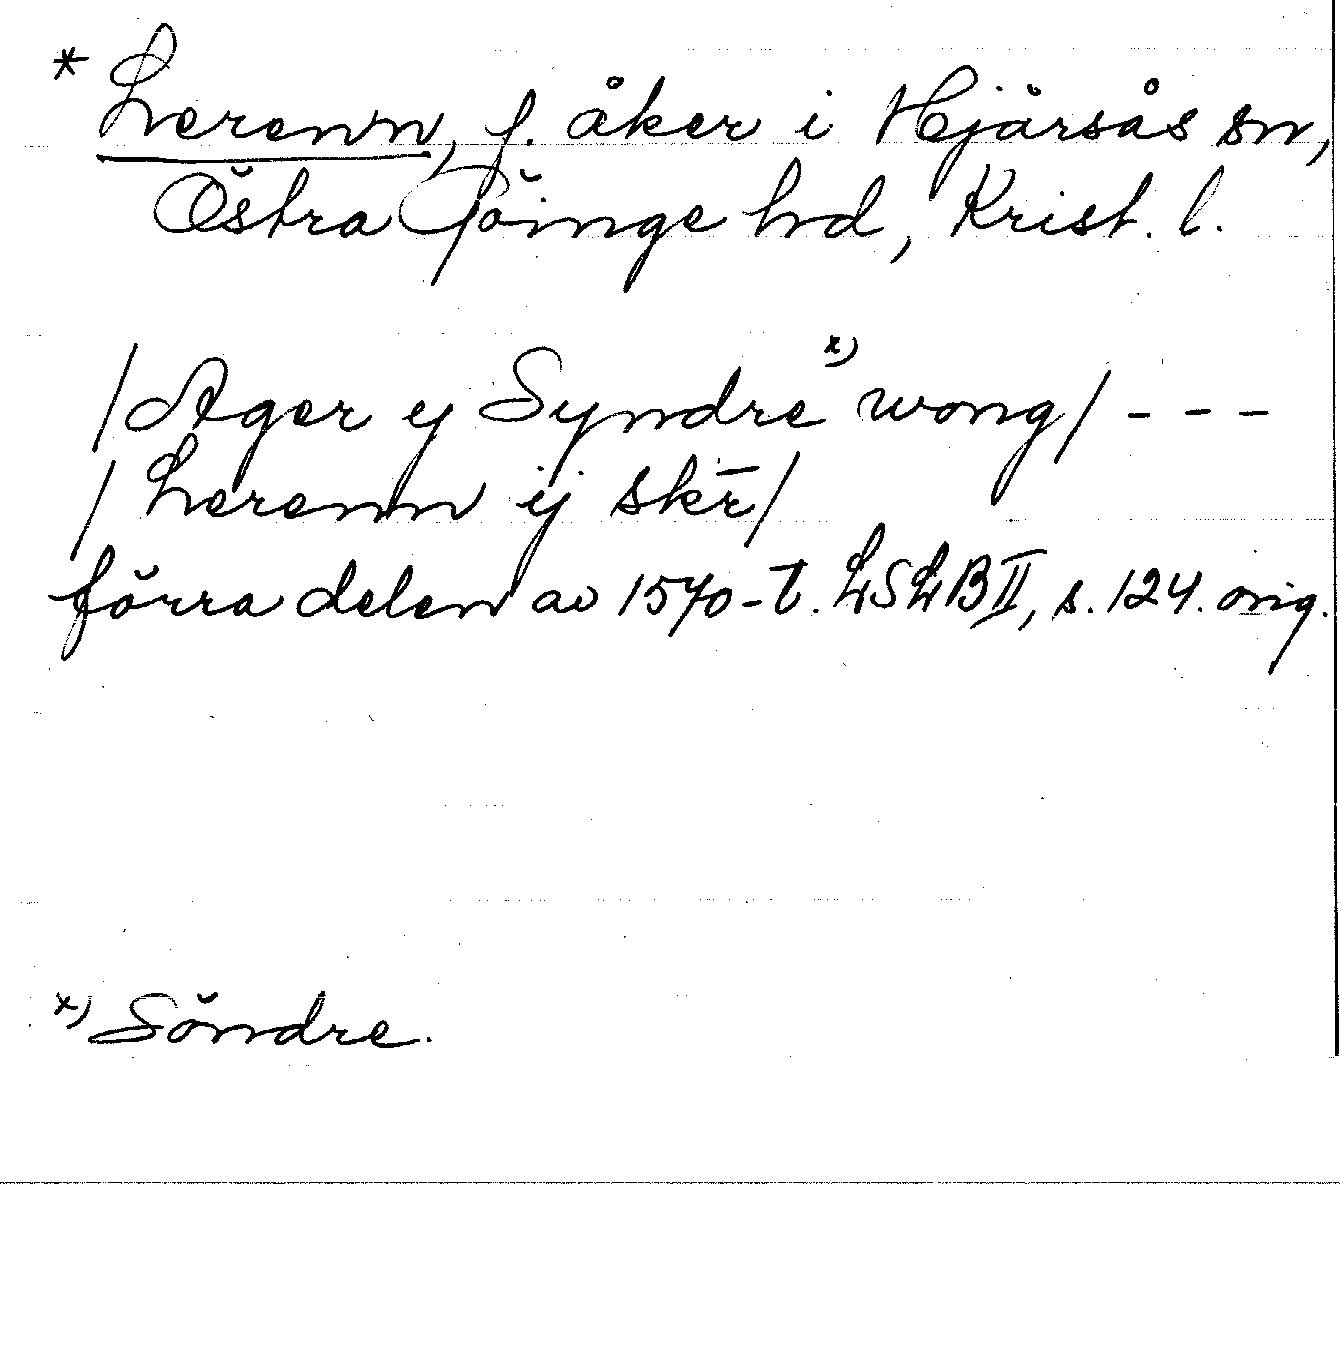 * Lerenn, f. åker i Hjärsås sn,
Östra Göinge hd, Krist. l.
/Ager ij Syndre x) wong/ - - -
/Lerenn ij skr̄/
förra delen av 1570-t. LSLB II, s. 124. orig.
x) Söndre.